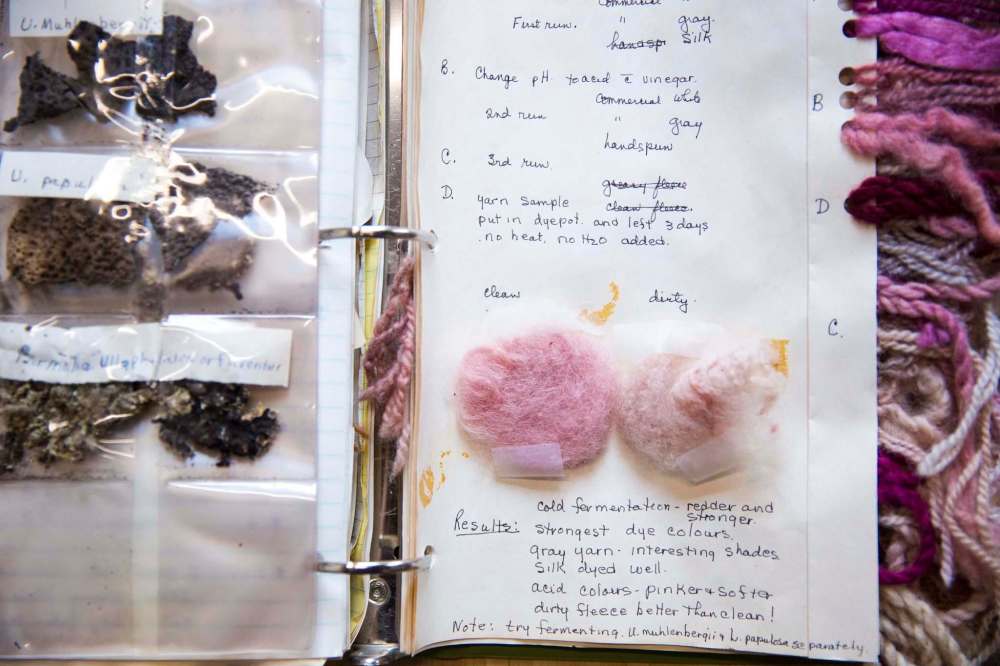 U. Muhlenbergii
U. papul
Commercial "
First run. " gray.
handsp silk
B. Change pH to acid c̄ vinegar.
Commercial white
2nd run " gray
handspun
C. 3rd run.
greasy fleece
D. yarn sample clean fleece.
put in dyepot. and left 3 days
no heat. no H2O added.
clean dirty.
B
D
C.
cold fermentation - redder and
stronger.
Results: strongest dye colours.
gray yarn - interesting shades
Silk dyed well.
acid colours - pinker & softer
dirty fleece better than clean!
Note: try fermenting U. muhlenbergii & U. papulosa separately.